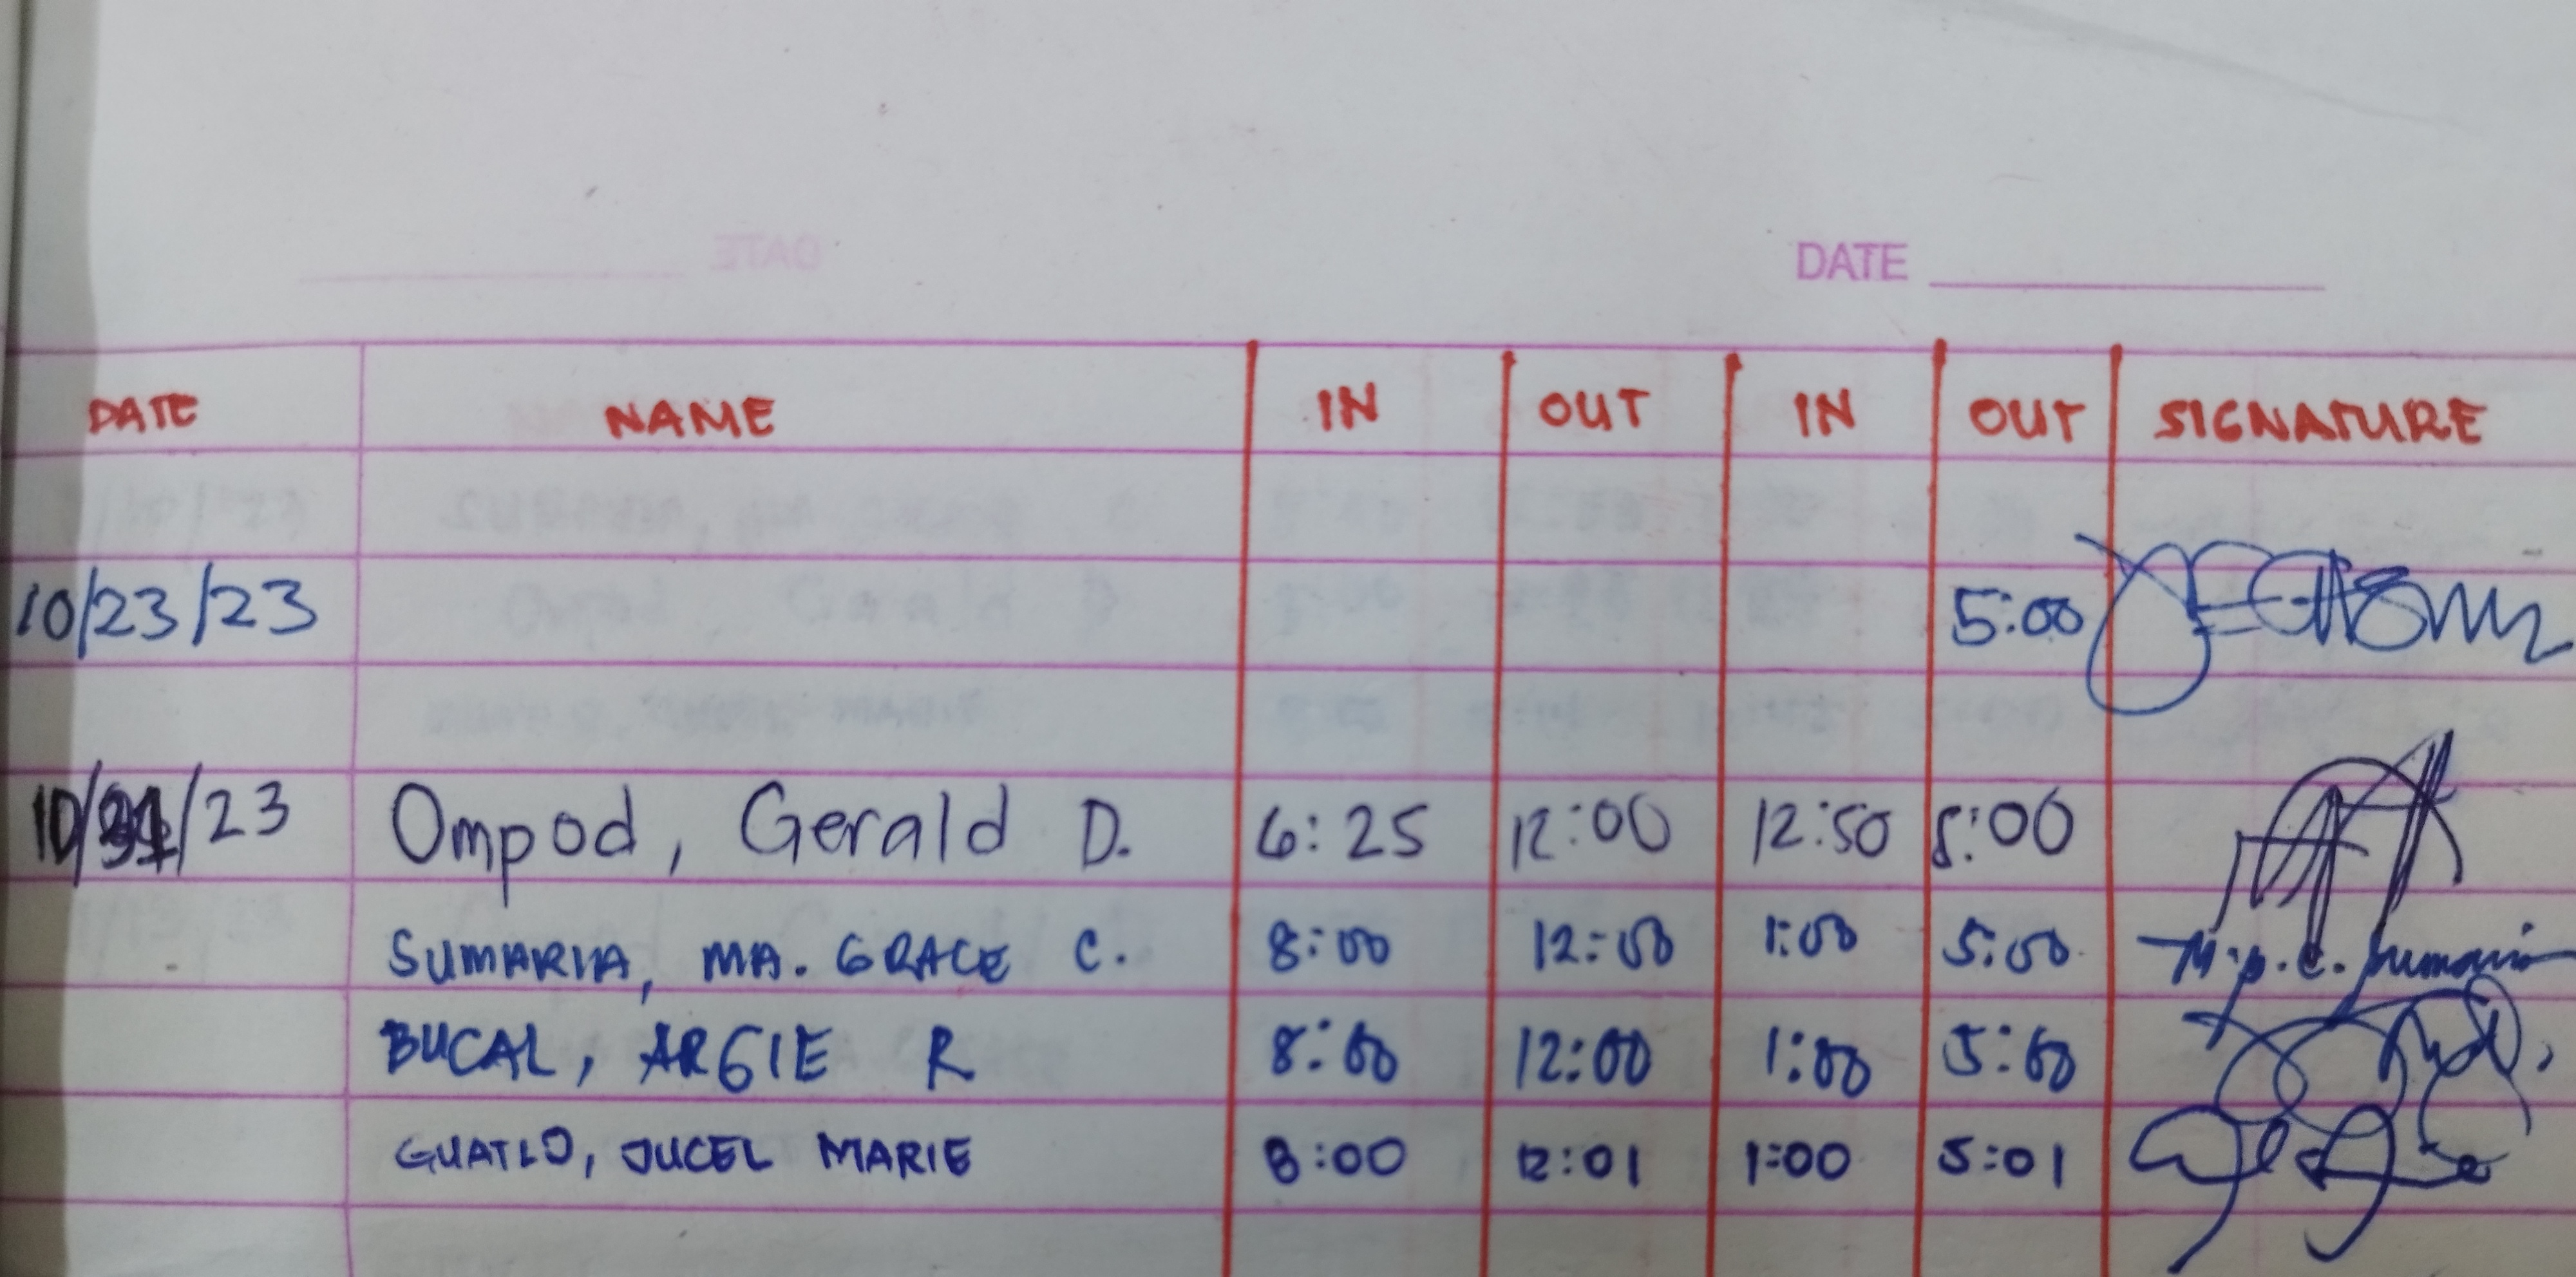 DATE
DATE NAME IN OUT IN OUT SIGNATURE
10/23/23 5:00
10/ /23 Ompod, Gerald D. 6:25 12:00 12:50 5:00
SUMARIA, MA. GRACE C. 8:00 12:00 1:00 5:00
BUCAL, ARGIE R 8:00 12:00 1:00 5:00
GUATLO, JUCEL MARIE 8:00 12:01 1:00 5:01